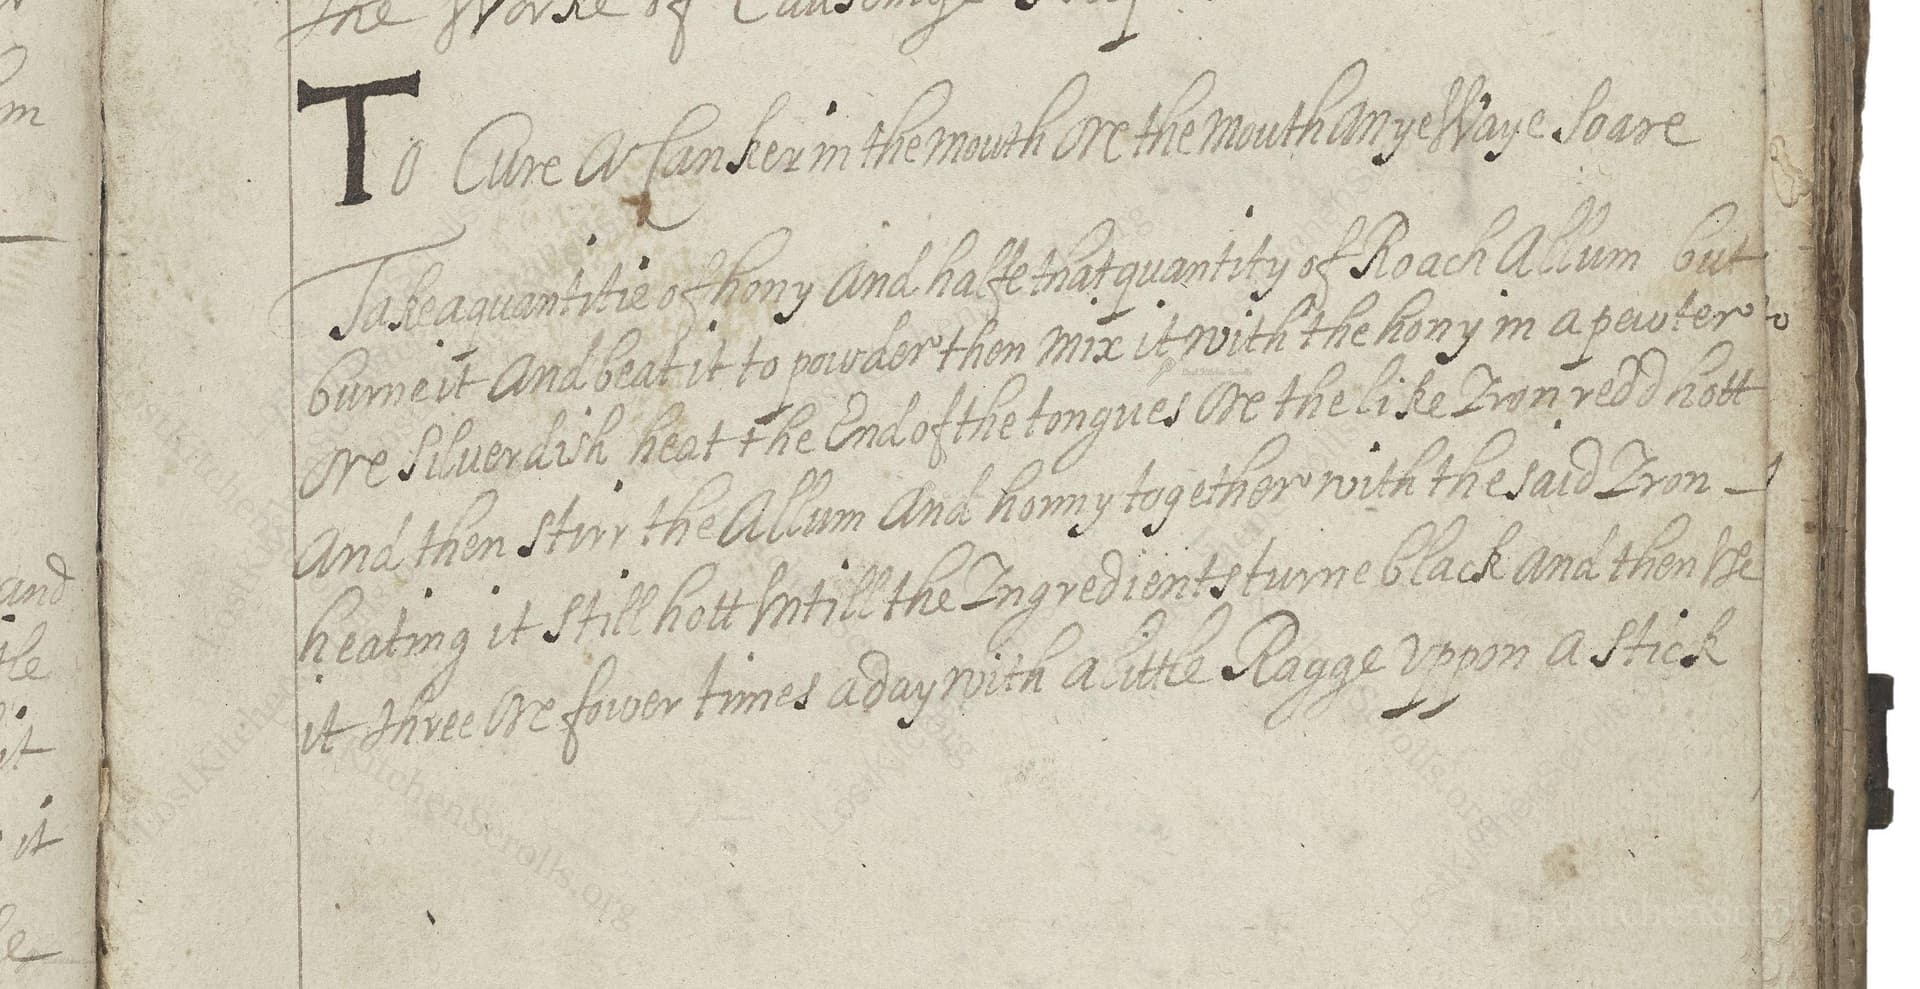 the Worke of
To Cure A Canker in the mouth Ore the mouth Anye Waye Soare
Take a quantitie of hony And halfe that quantity of Roach Allum but
burne it And beat it to powder then mix it with the hony in a pewter
Ore Silver dish heat the End of the tongues Ore the like Iron redd hott
And then stirr the Allum And honny together with the said Iron
heating it still hott Vntill the Ingredients turne black And then Vse
it three Ore fower times a day with a little Ragge Vppon A Stick
m
and
tle
it
it
LostKitchenScrolls.org